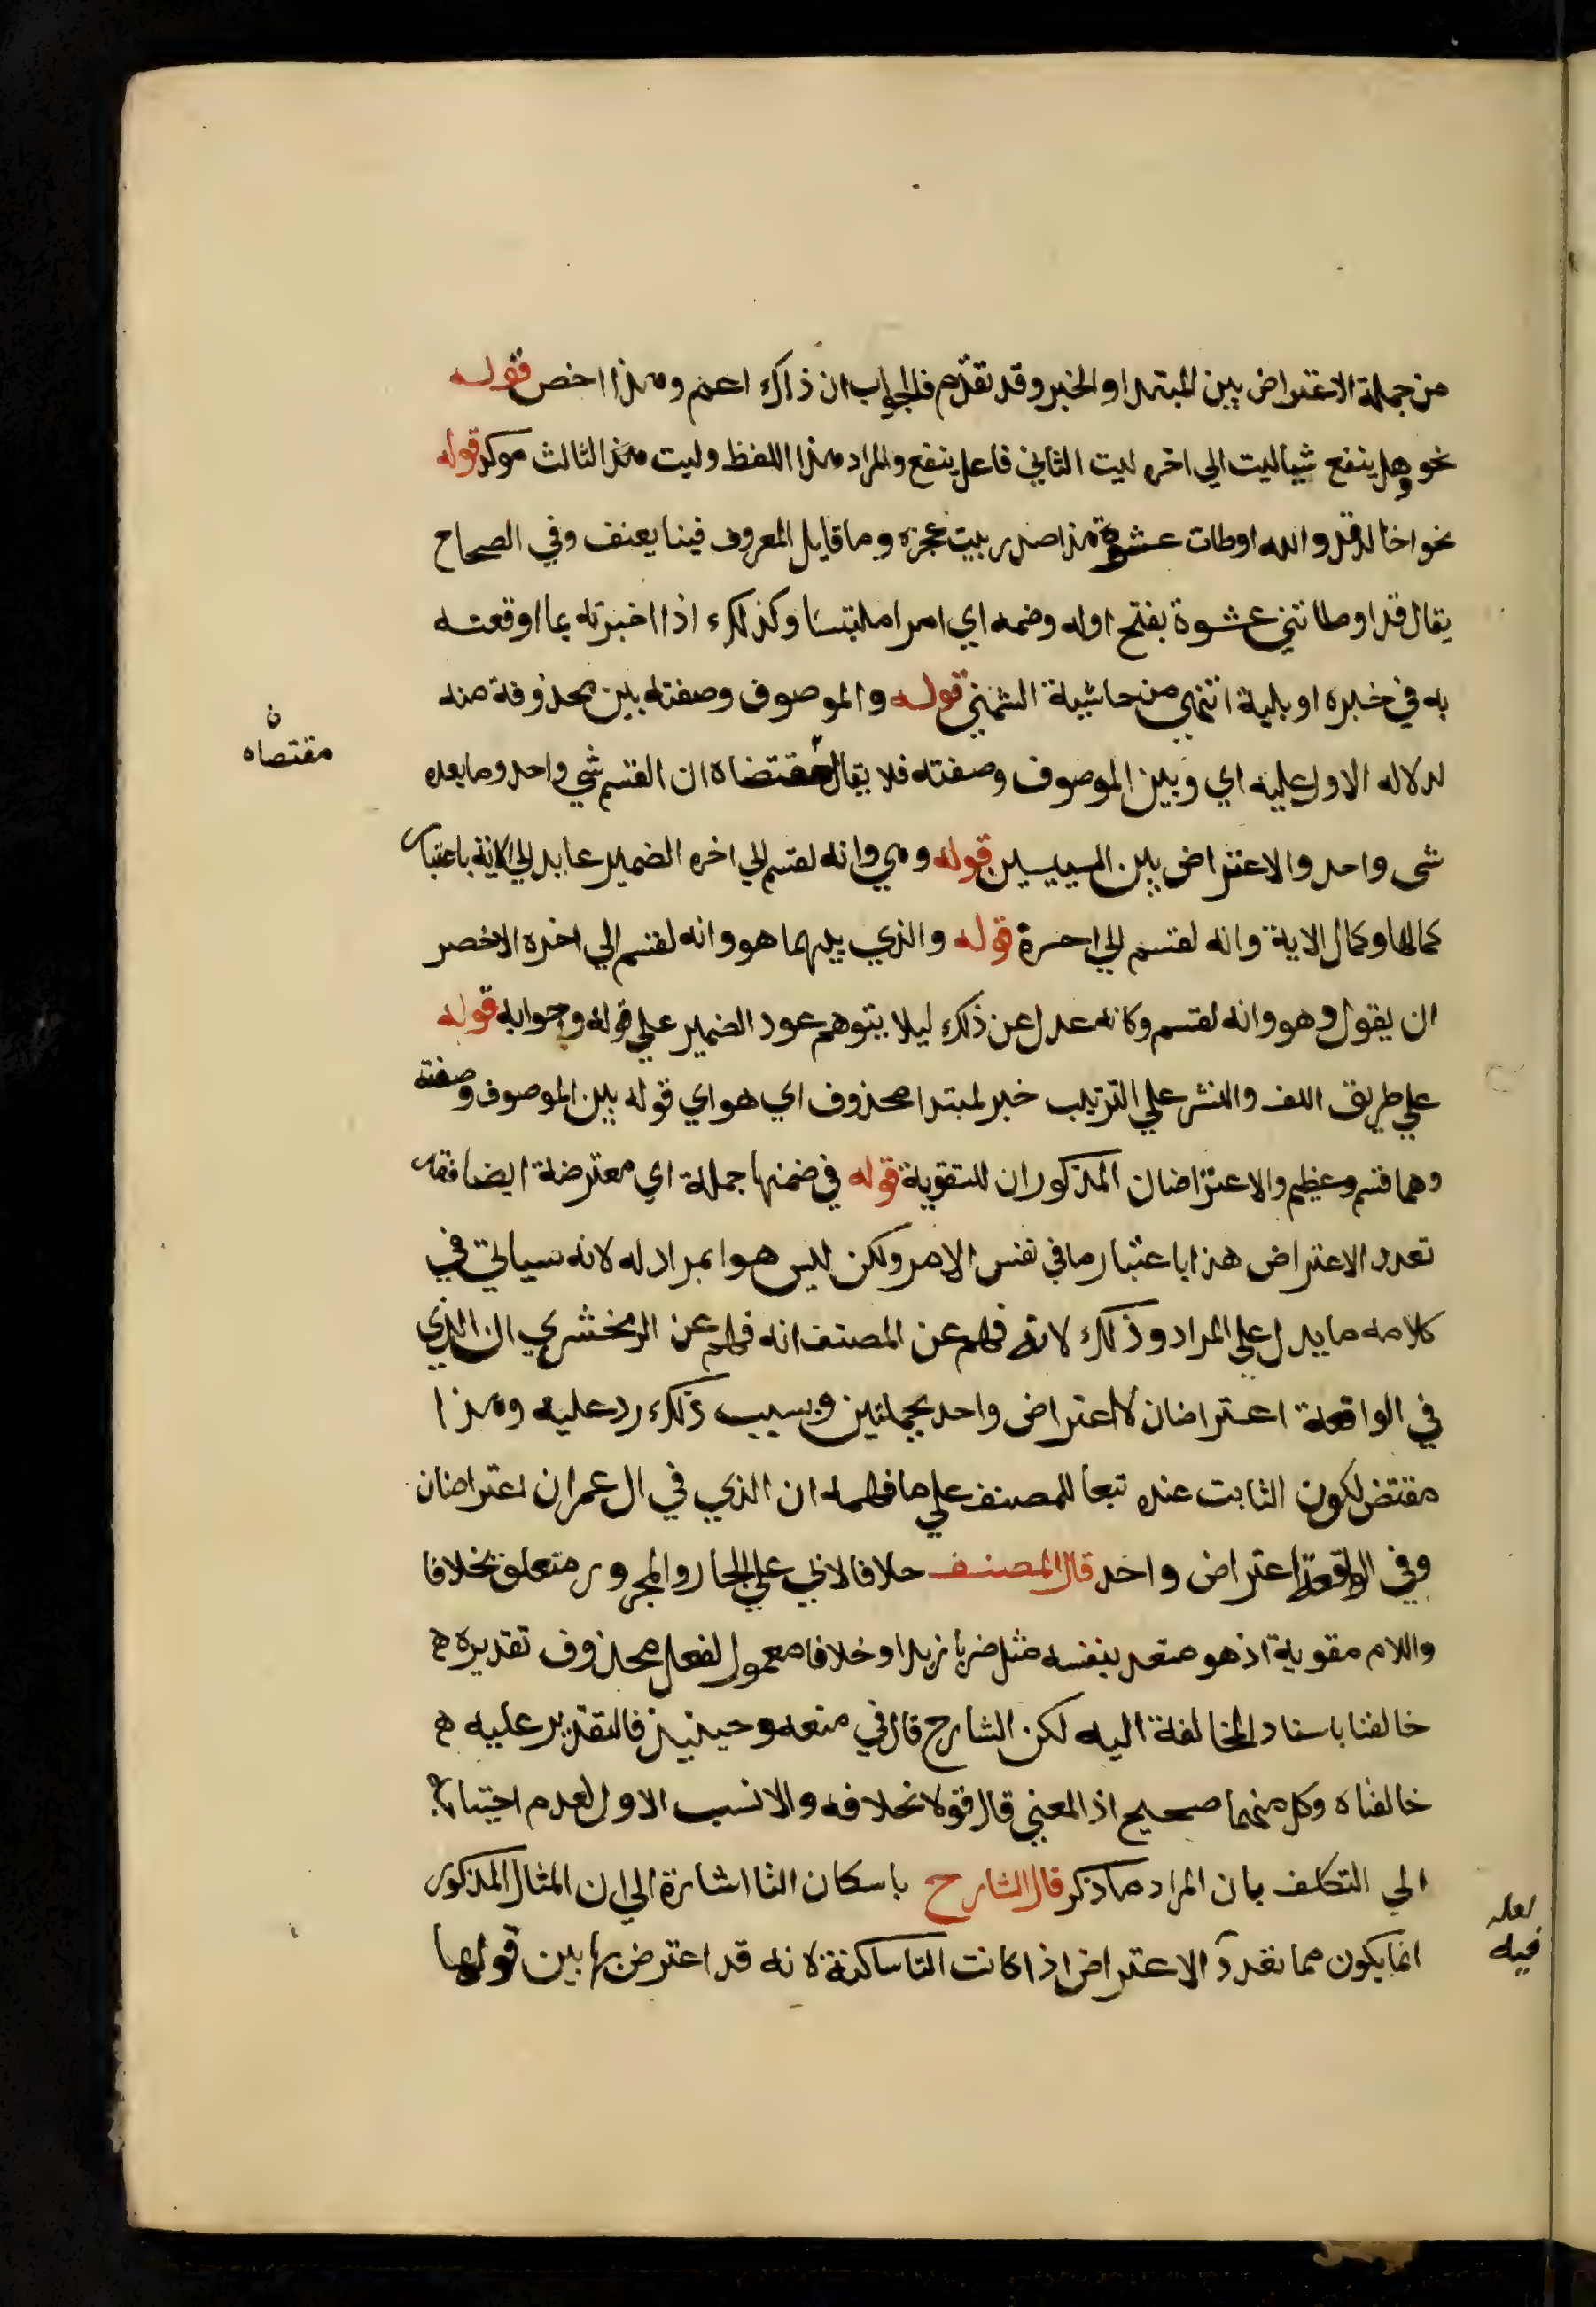 من جملة الاعتراض بين المبتدا والخبر وقد تقدم فالجواب ان ذاك اعم وهذا اخص قوله
نحو وهل ينفع شيا ليت الي اخره ليت الثاني فاعل ينفع والمراد هذا اللفظ وليت هذا الثالث موكد قوله
نحو اخالد قد والله اوطات عشوة هذا صدر بيت عجزه وما قايل المعروف فينا يعنف وفي الصحاح
يقال قد اوطاتني عشوة بفتح اوله وضمه اي امرا ملتبسا وكذلك اذا اخبرته بما اوقعته
به في خيره او بلية انتهي من حاشية الشمني قوله والموصوف وصفته بين محذوفة منه
لدلاله الاول عليه اي وبين الموصوف وصفته فلا يقال مقتضاه ان القسم شي واحد وما بعده
ن
مقتصاه
شى واحد والاعتراض بين السييين قوله وهي وانه لقسم الي اخره الضمير عايد الي الاية باعتبار
كمالها وكمال الاية وانه لقسم الي احره قوله والذي بينهما هو وانه لقسم الي اخره الاخصر
ان يقول وهو وانه لقسم وكانه عدل عن ذلك ليلا يتوهم عود الضمير علي قوله وجوابه قوله
علي طريق اللف والنشر علي الترتيب خبر لمبتدا محذوف اي هو اي قوله بين الموصوف وصفته
وهما قسم وعظيم والاعتراضان المذكوران للتقوية قوله في ضمنها جملة اي معترضة ايضا فقد
تعدد الاعتراض هذا باعتبار ما في نفس الامر ولكن ليس هوا بمراد له لانه سياتي في
كلامه ما يدل علي المراد وذلك لانه فهم عن المصنف انه فهم عن الزمخشري ان الذي
في الواقعة اعتراضان لا اعتراض واحد بجملتين وبسبب ذلك رد عليه وهذا
مقتض لكون الثابت عنده تبعا للمصنف علي ما فهمه ان الذي في ال عمران اعتراضان
وفي الواقعة اعتراض واحد قال المصنف خلافا لابي علي الجار والمجرور متعلق بخلافا
واللام مقوية اذ هو متعد بنفسه مثل ضربا زيدا وخلافا معمول لفعل محذوف تقديره ه
خالفنا باسناد المخالفة اليه لكن الشارح قال في منعه وحينيذ فالتقدير عليه ه
خالفناه وكل منهما صحيح اذ المعني قال قولا نخلافه والانسب الاول لعدم احتياجه
الي التكلف بان المراد ما ذكر قال الشارح باسكان التا اشارة الي ان المثال المذكور
انما يكون مما تعدد الاعتراض اذا كانت التا ساكنة لانه قد اعترض بها بين قولها
لعله
فيه